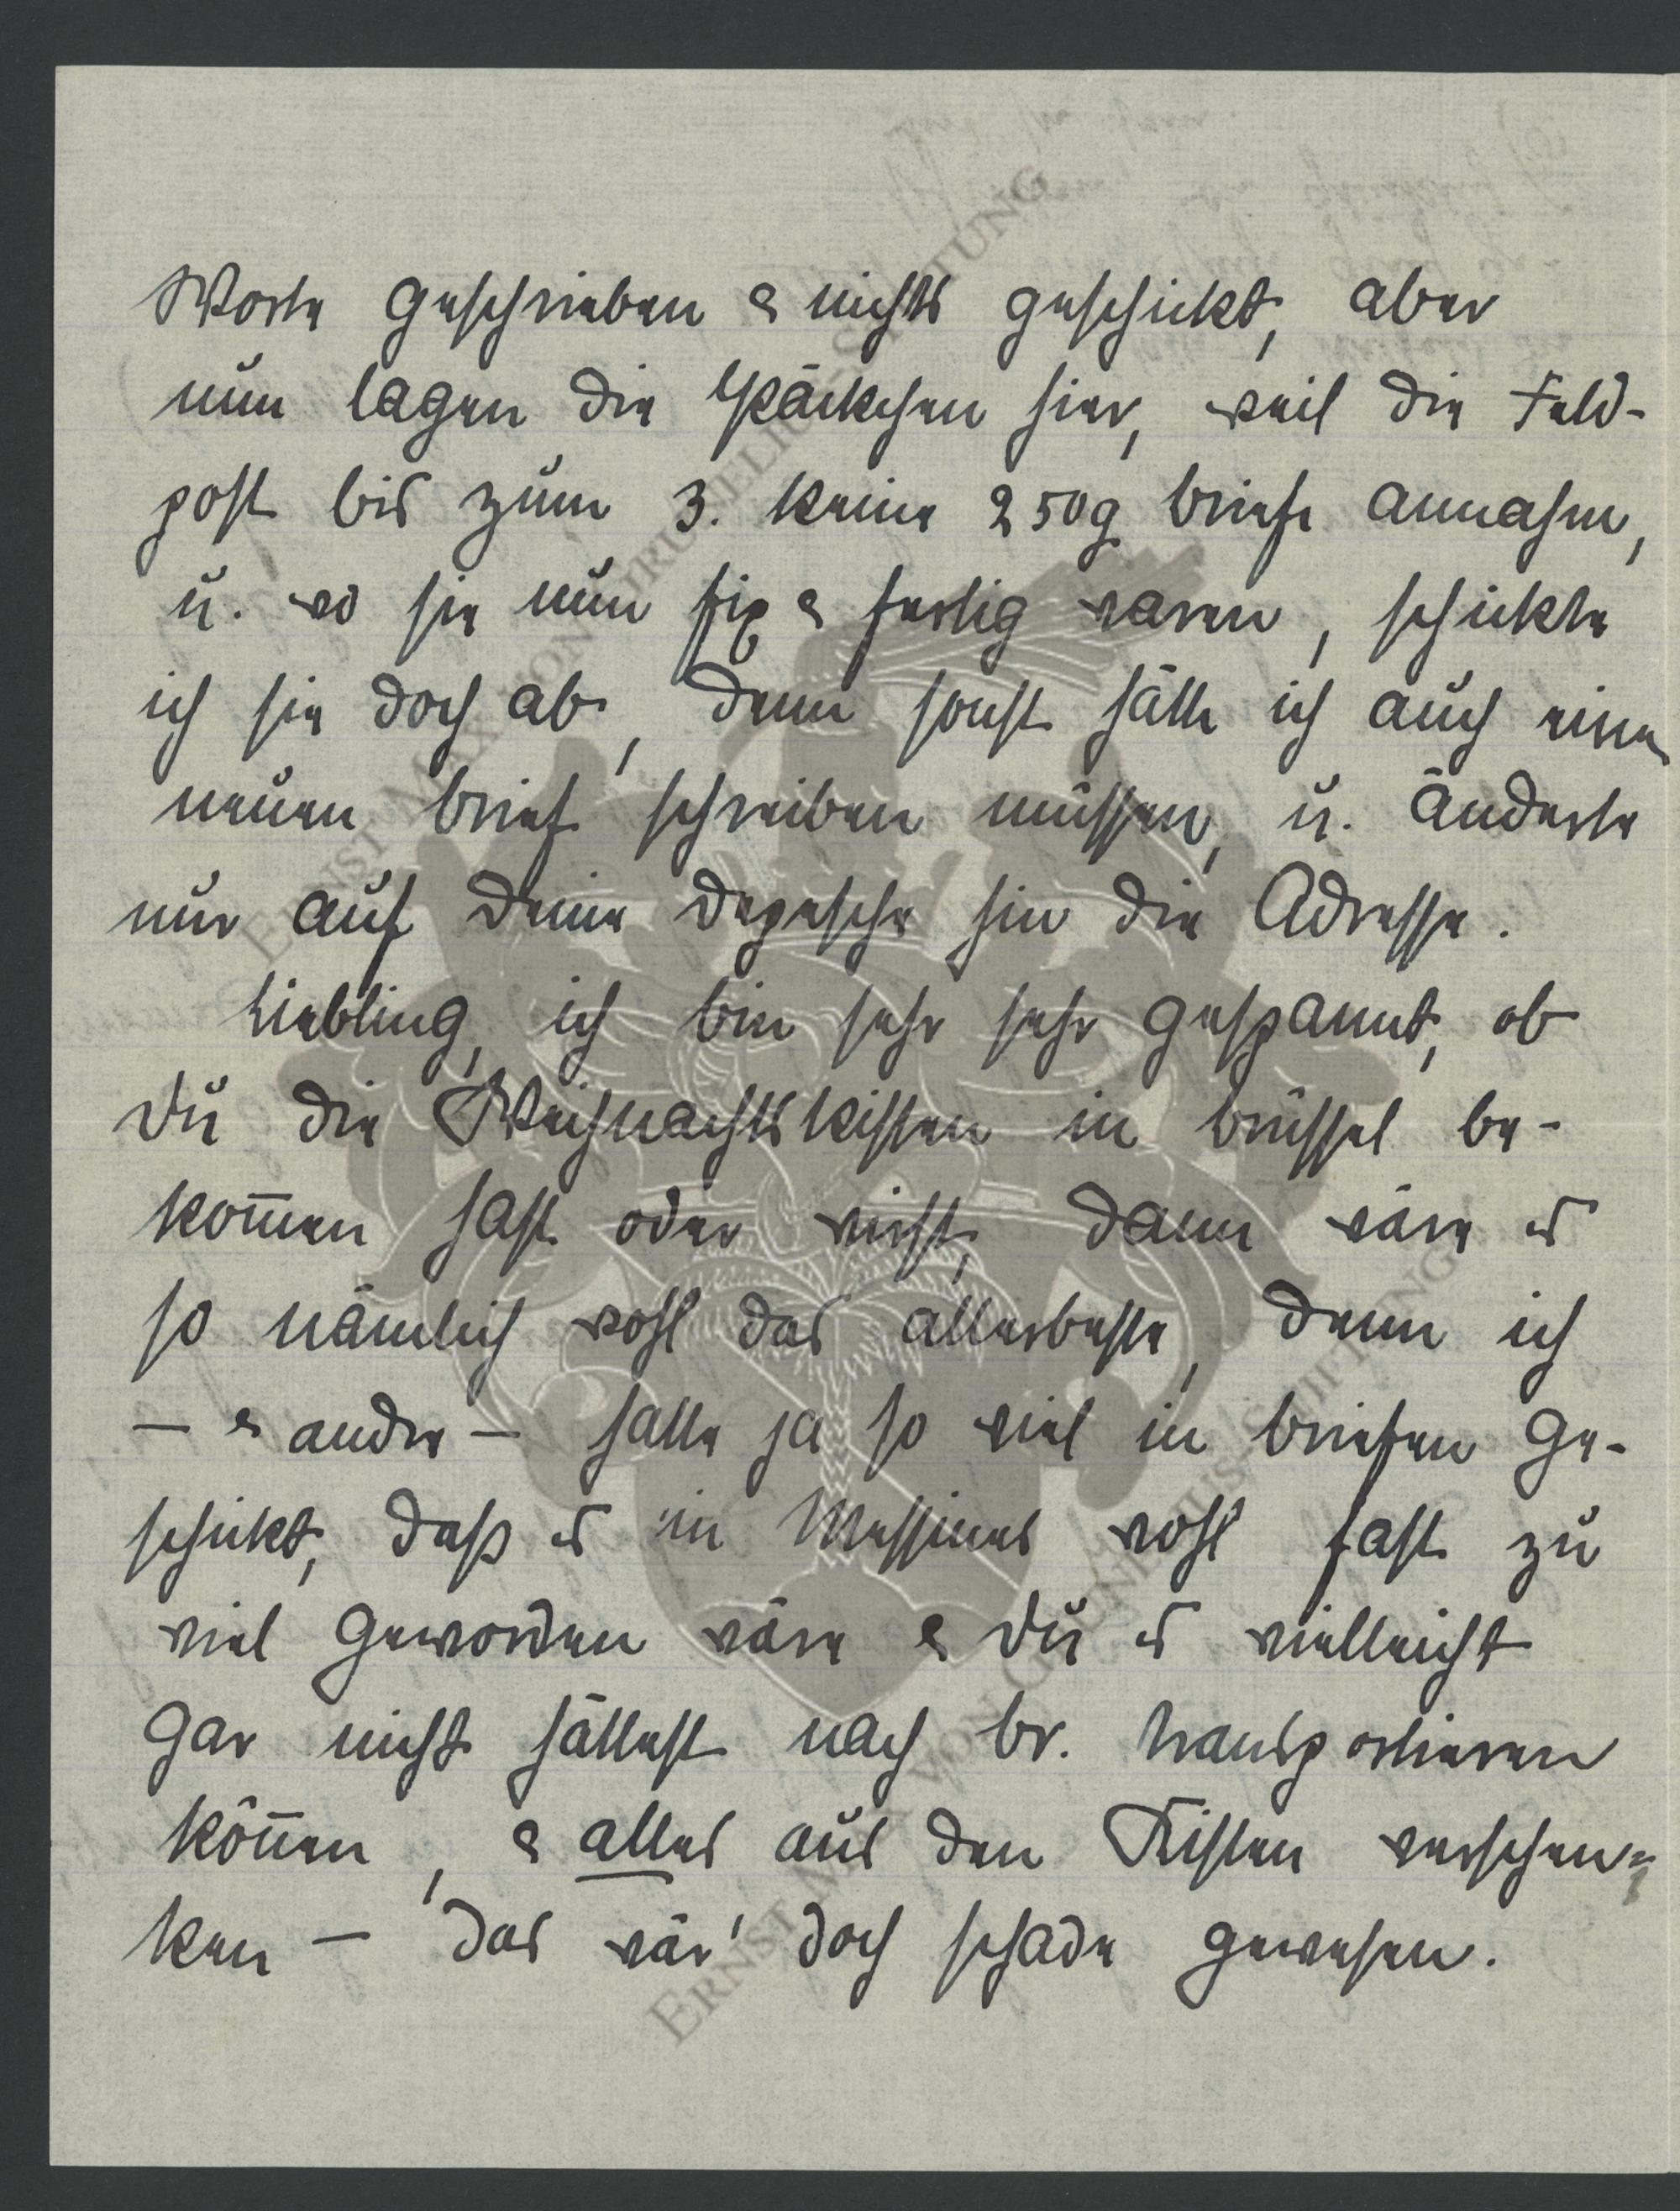 Worte geschrieben & nichts geschickt, aber
nun lagen die Päckchen hier, weil die Feld-
post bis zum 3. keine 250g briefe annahm,
u. wo sie nun fix & fertig waren, schickte
ich sie doch ab, denn sonst hätte ich auch einen
neuen brief schreiben müssen, u. änderte
nur auf deine depesche hin die Adresse.
Liebling, ich bin sehr sehr gespannt, ob
du die Weihnachtskisten in brüssel be-
kom̄en hast oder nicht, dann wäre es
so nämlich wohl das allerbeste, denn ich
— & andre — hatte ja so viel in briefen ge-
schickt, daß es in Messines wohl fast zu
viel geworden wäre & du es vielleicht
gar nicht hättest nach br. transportieren
kön̄en, & alles aus den Kisten verschen-
ken — das wär' doch schade gewesen.
ERNST MAX VON GRUNELIUS-STIFTUNG
ERNST MAX VON GRUNELIUS-STIFTUNG